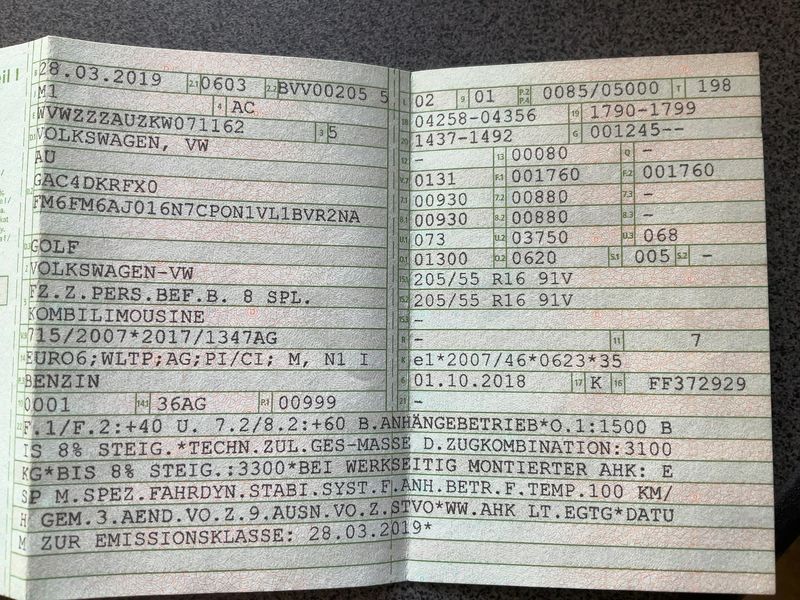 28.03.2019 2.1 0603 2.2 BVV00205 5
M1 4 AC
WVWZZZAUZKW071162 3 5
VOLKSWAGEN, VW
AU
GAC4DKRFX0
FM6FM6AJ016N7CPON1VL1BVR2NA
GOLF
VOLKSWAGEN-VW
FZ.Z.PERS.BEF.B. 8 SPL.
KOMBILIMOUSINE
715/2007*2017/1347AG
EURO6;WLTP;AG;PI/CI; M, N1 I
BENZIN
0001 14.1 36AG P.1 00999
L 02 9 01 P.2 P.4 0085/05000 T 198
18 04258-04356 19 1790-1799
20 1437-1492 G 001245--
12 - 13 00080 Q -
V.7 0131 F.1 001760 F.2 001760
7.1 00930 7.2 00880 7.3 -
8.1 00930 8.2 00880 8.3 -
U.1 073 U.2 03750 U.3 068
O.1 01300 O.2 0620 S.1 005 S.2 -
15.1 205/55 R16 91V
15.2 205/55 R16 91V
15.3 -
R - 11 7
K e1*2007/46*0623*35
6 01.10.2018 17 K 16 FF372929
21 -
22 F.1/F.2:+40 U. 7.2/8.2:+60 B.ANHÄNGEBETRIEB*O.1:1500 B
IS 8% STEIG.*TECHN.ZUL.GES-MASSE D.ZUGKOMBINATION:3100
KG*BIS 8% STEIG.:3300*BEI WERKSEITIG MONTIERTER AHK: E
SP M.SPEZ.FAHRDYN.STABI.SYST.F.ANH.BETR.F.TEMP.100 KM/
H GEM.3.AEND.VO.Z.9.AUSN.VO.Z.STVO*WW.AHK LT.EGTG*DATU
M ZUR EMISSIONSKLASSE: 28.03.2019*